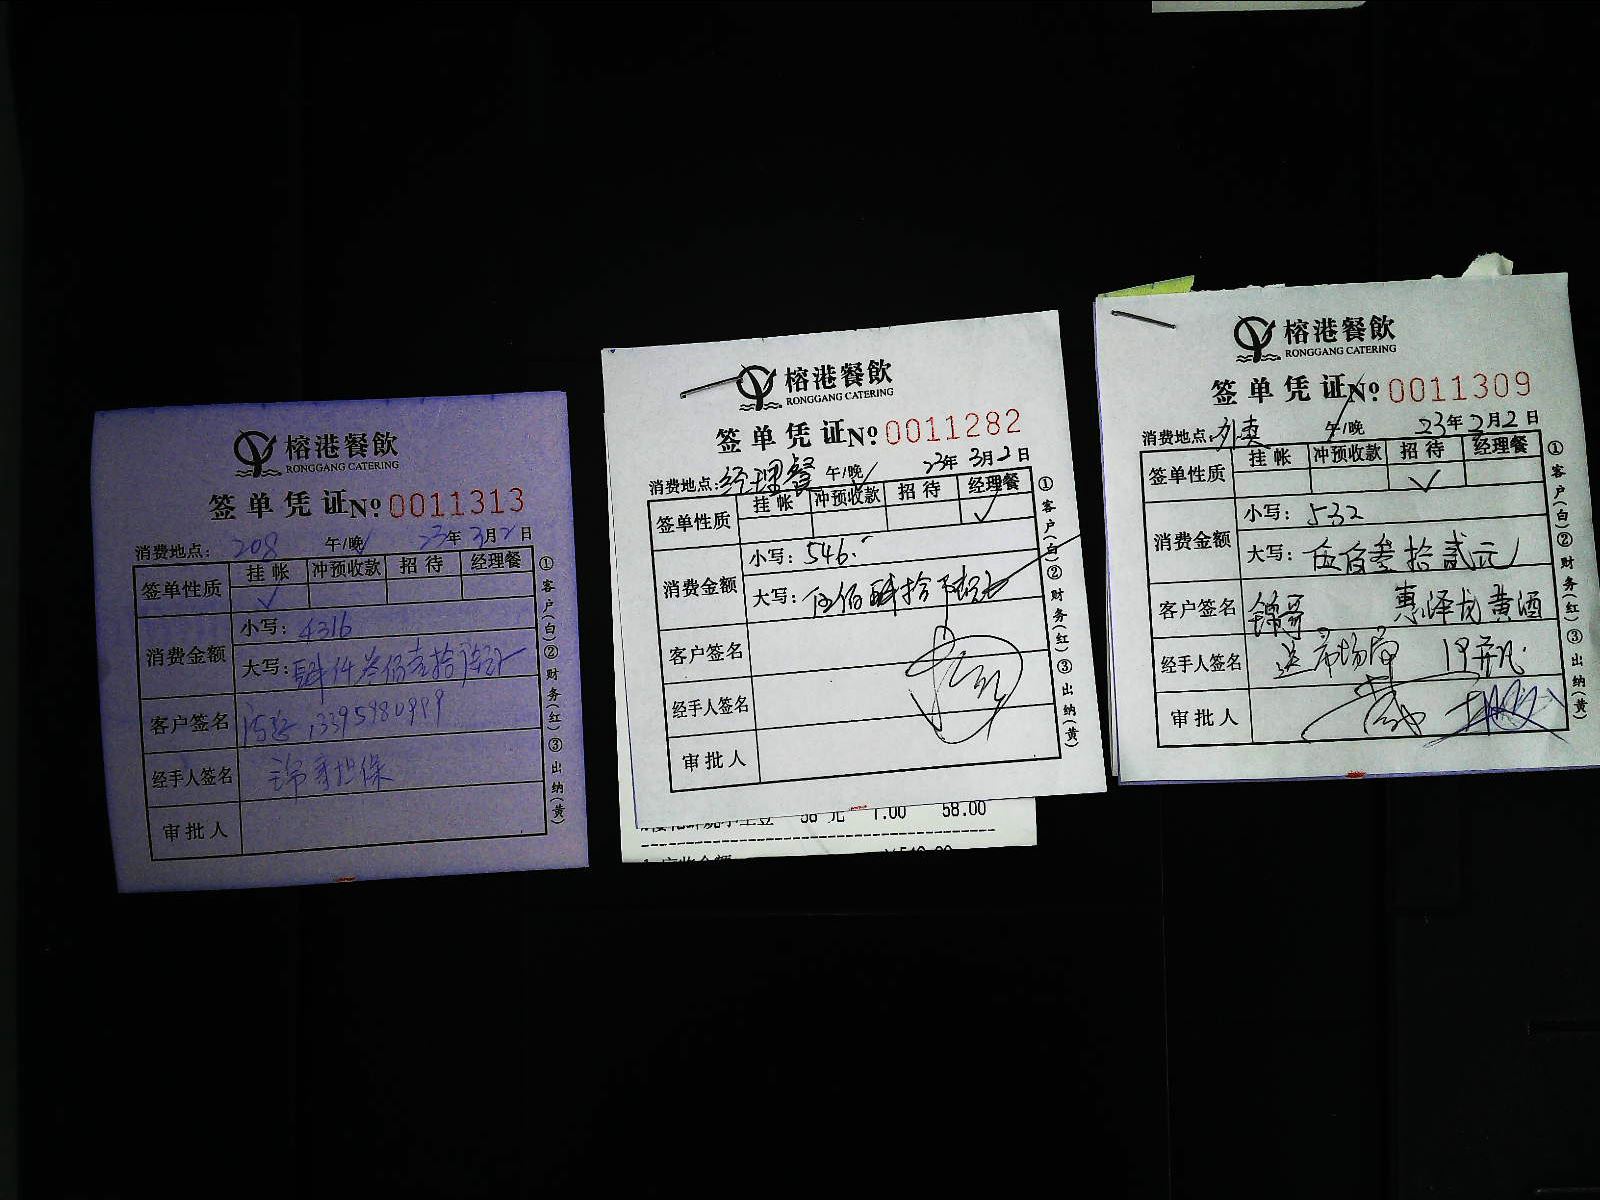 榕港餐飲
RONGGANG CATERING
签单凭证 No 0011313
消费地点: 208 午/晚 23年3月2日
签单性质 挂帐 冲预收款 招待 经理餐
消费金额
小写: 4316
大写: 肆仟叁佰壹拾陆元
客户签名 13395980999
经手人签名 锦哥担保
审批人
①客户(白)②财务(红)③出纳(黄)
榕港餐飲
RONGGANG CATERING
签单凭证 No 0011282
消费地点: 经理餐 午/晚 23年3月2日
签单性质 挂帐 冲预收款 招待 经理餐
消费金额
小写: 546.-
大写: 伍佰肆拾陆元
客户签名
经手人签名
审批人
①客户(白)②财务(红)③出纳(黄)
58元 1.00 58.00
榕港餐飲
RONGGANG CATERING
签单凭证 No 0011309
消费地点: 外卖 午/晚 23年3月2日
签单性质 挂帐 冲预收款 招待 经理餐
消费金额
小写: 532
大写: 伍佰叁拾贰元
客户签名 锦哥 黄酒
经手人签名 送市场局
审批人
①客户(白)②财务(红)③出纳(黄)